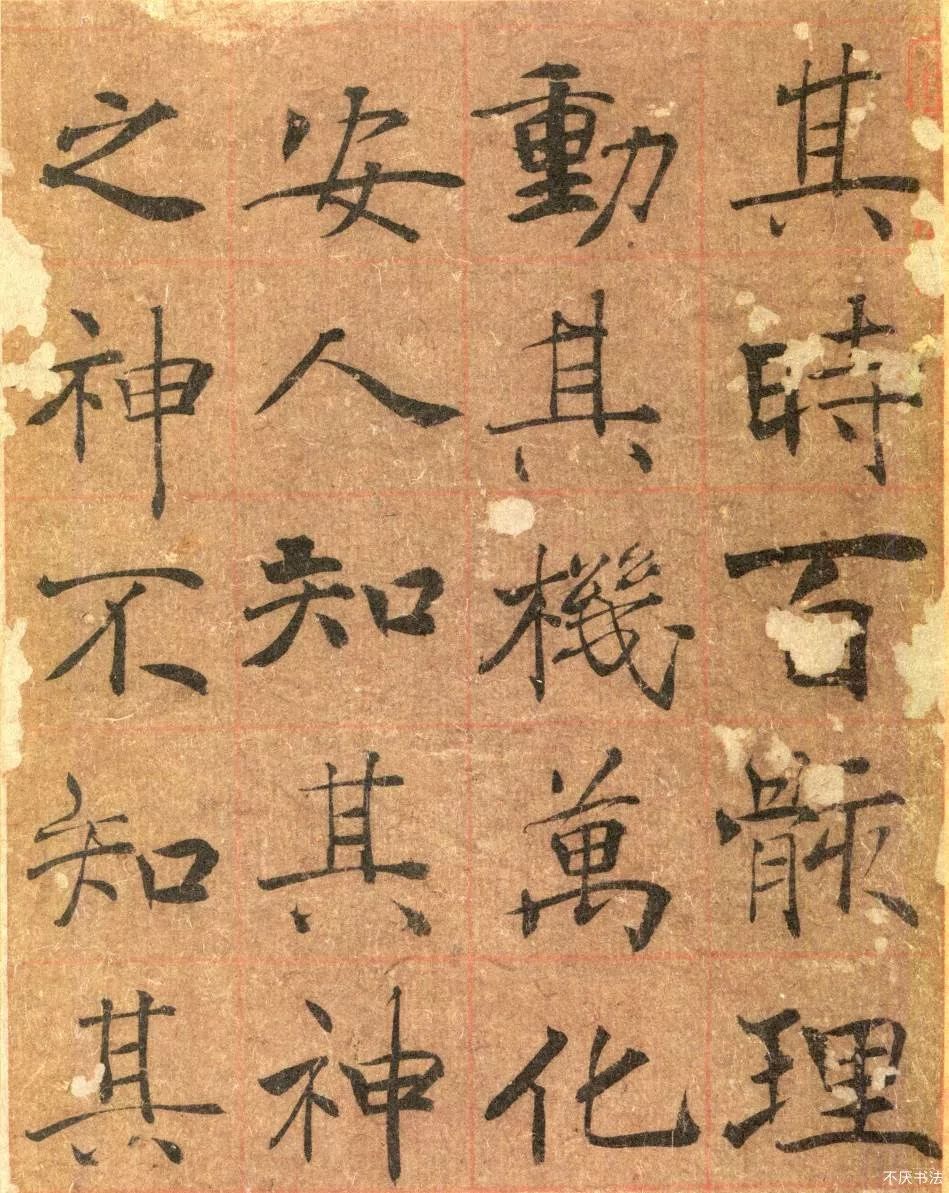 其時百骸理
動其機萬化
安人知其神
之神不知其
不厌书法